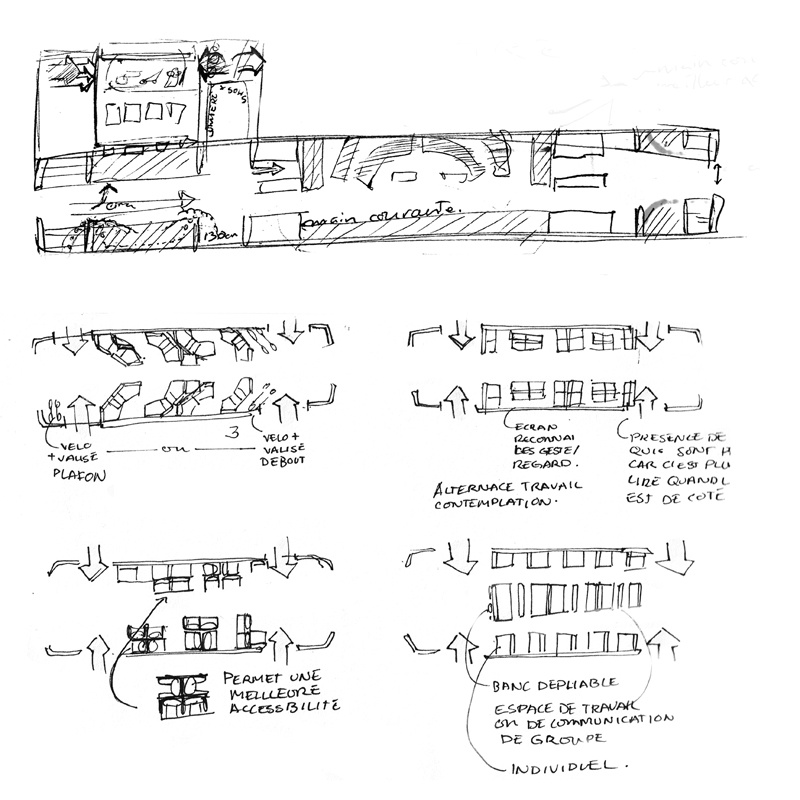 LUMIERE
+ SONS
130cm
main courante.
VELO
+ VALISE
PLAFON
ou
3
VELO +
VALISE
DEBOUT
ECRAN
RECONNAI
DES GESTE/
REGARD.
ALTERNACE TRAVAIL
CONTEMPLATION.
PRESENCE DE
QUI SONT H
CAR C'EST PLU
LIRE QUAND L
EST DE COTÉ
PERMET UNE
MEILLEURE
ACCESSBILITÉ
BANC DEPLIABLE
ESPACE DE TRAVAIL
OU DE COMMUNICATION
DE GROUPE
INDIVIDUEL.